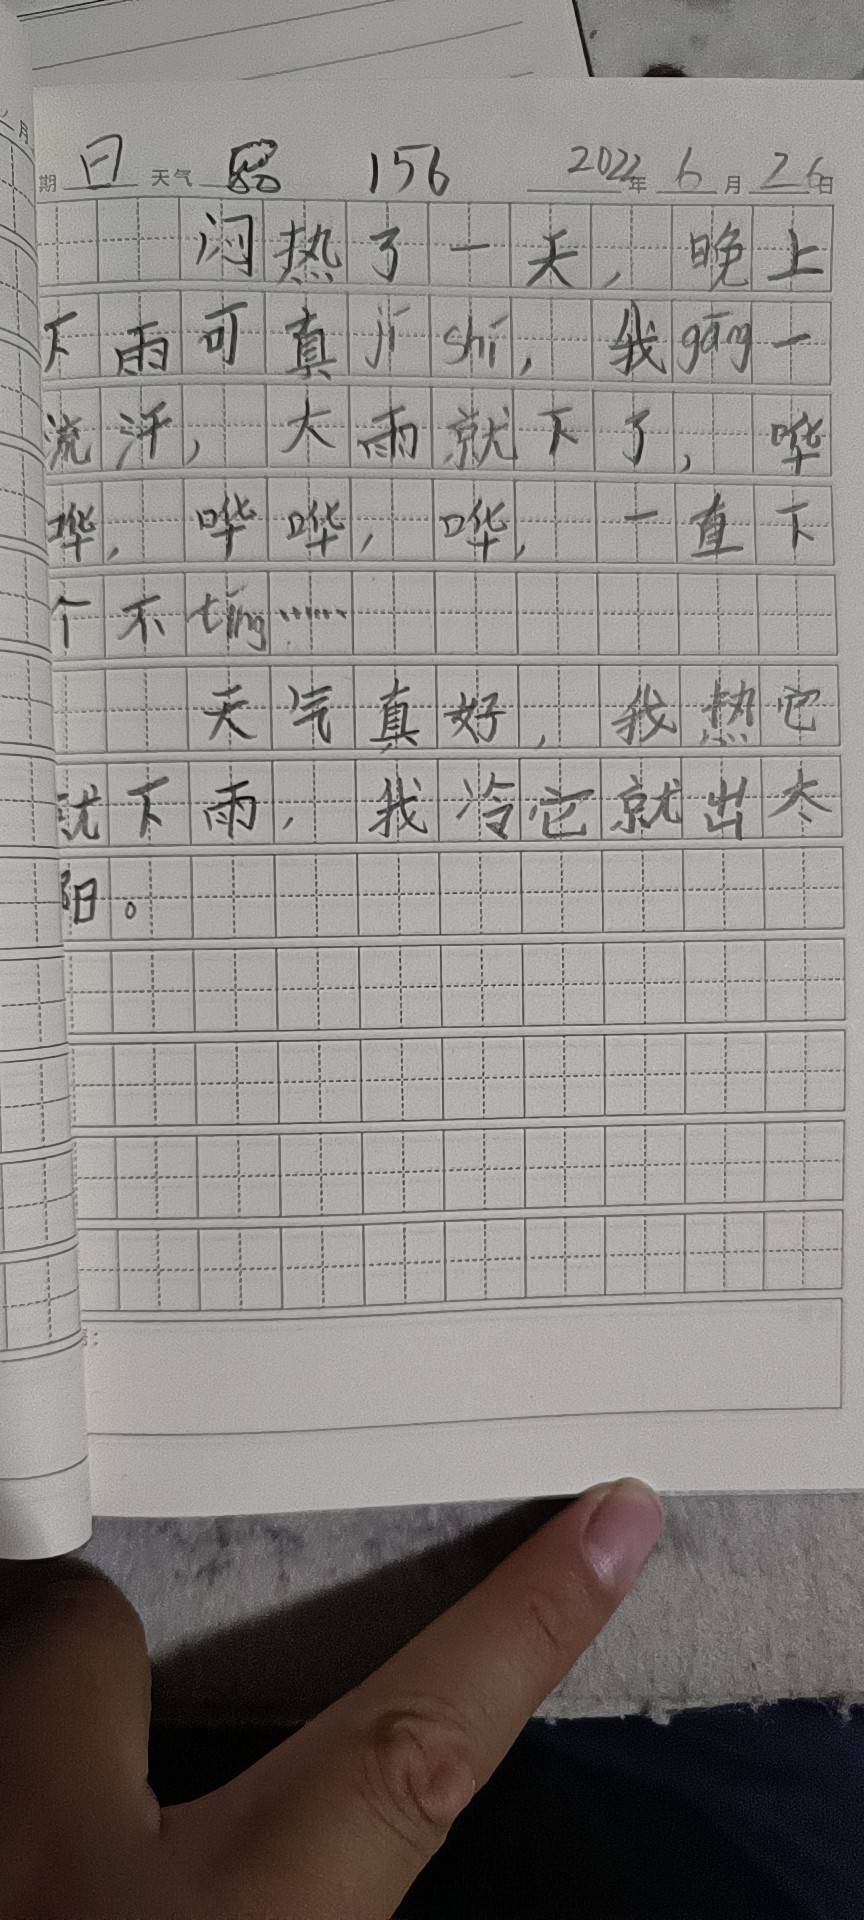 月
期 日 天气 156 2022年 6月 26日
闷热了一天，晚上
下雨可真jí shí，我gāng一
流汗，大雨就下了，哗
哗，哗哗，哗，一直下
个不tíng……
天气真好，我热它
就下雨，我冷它就出太
阳。